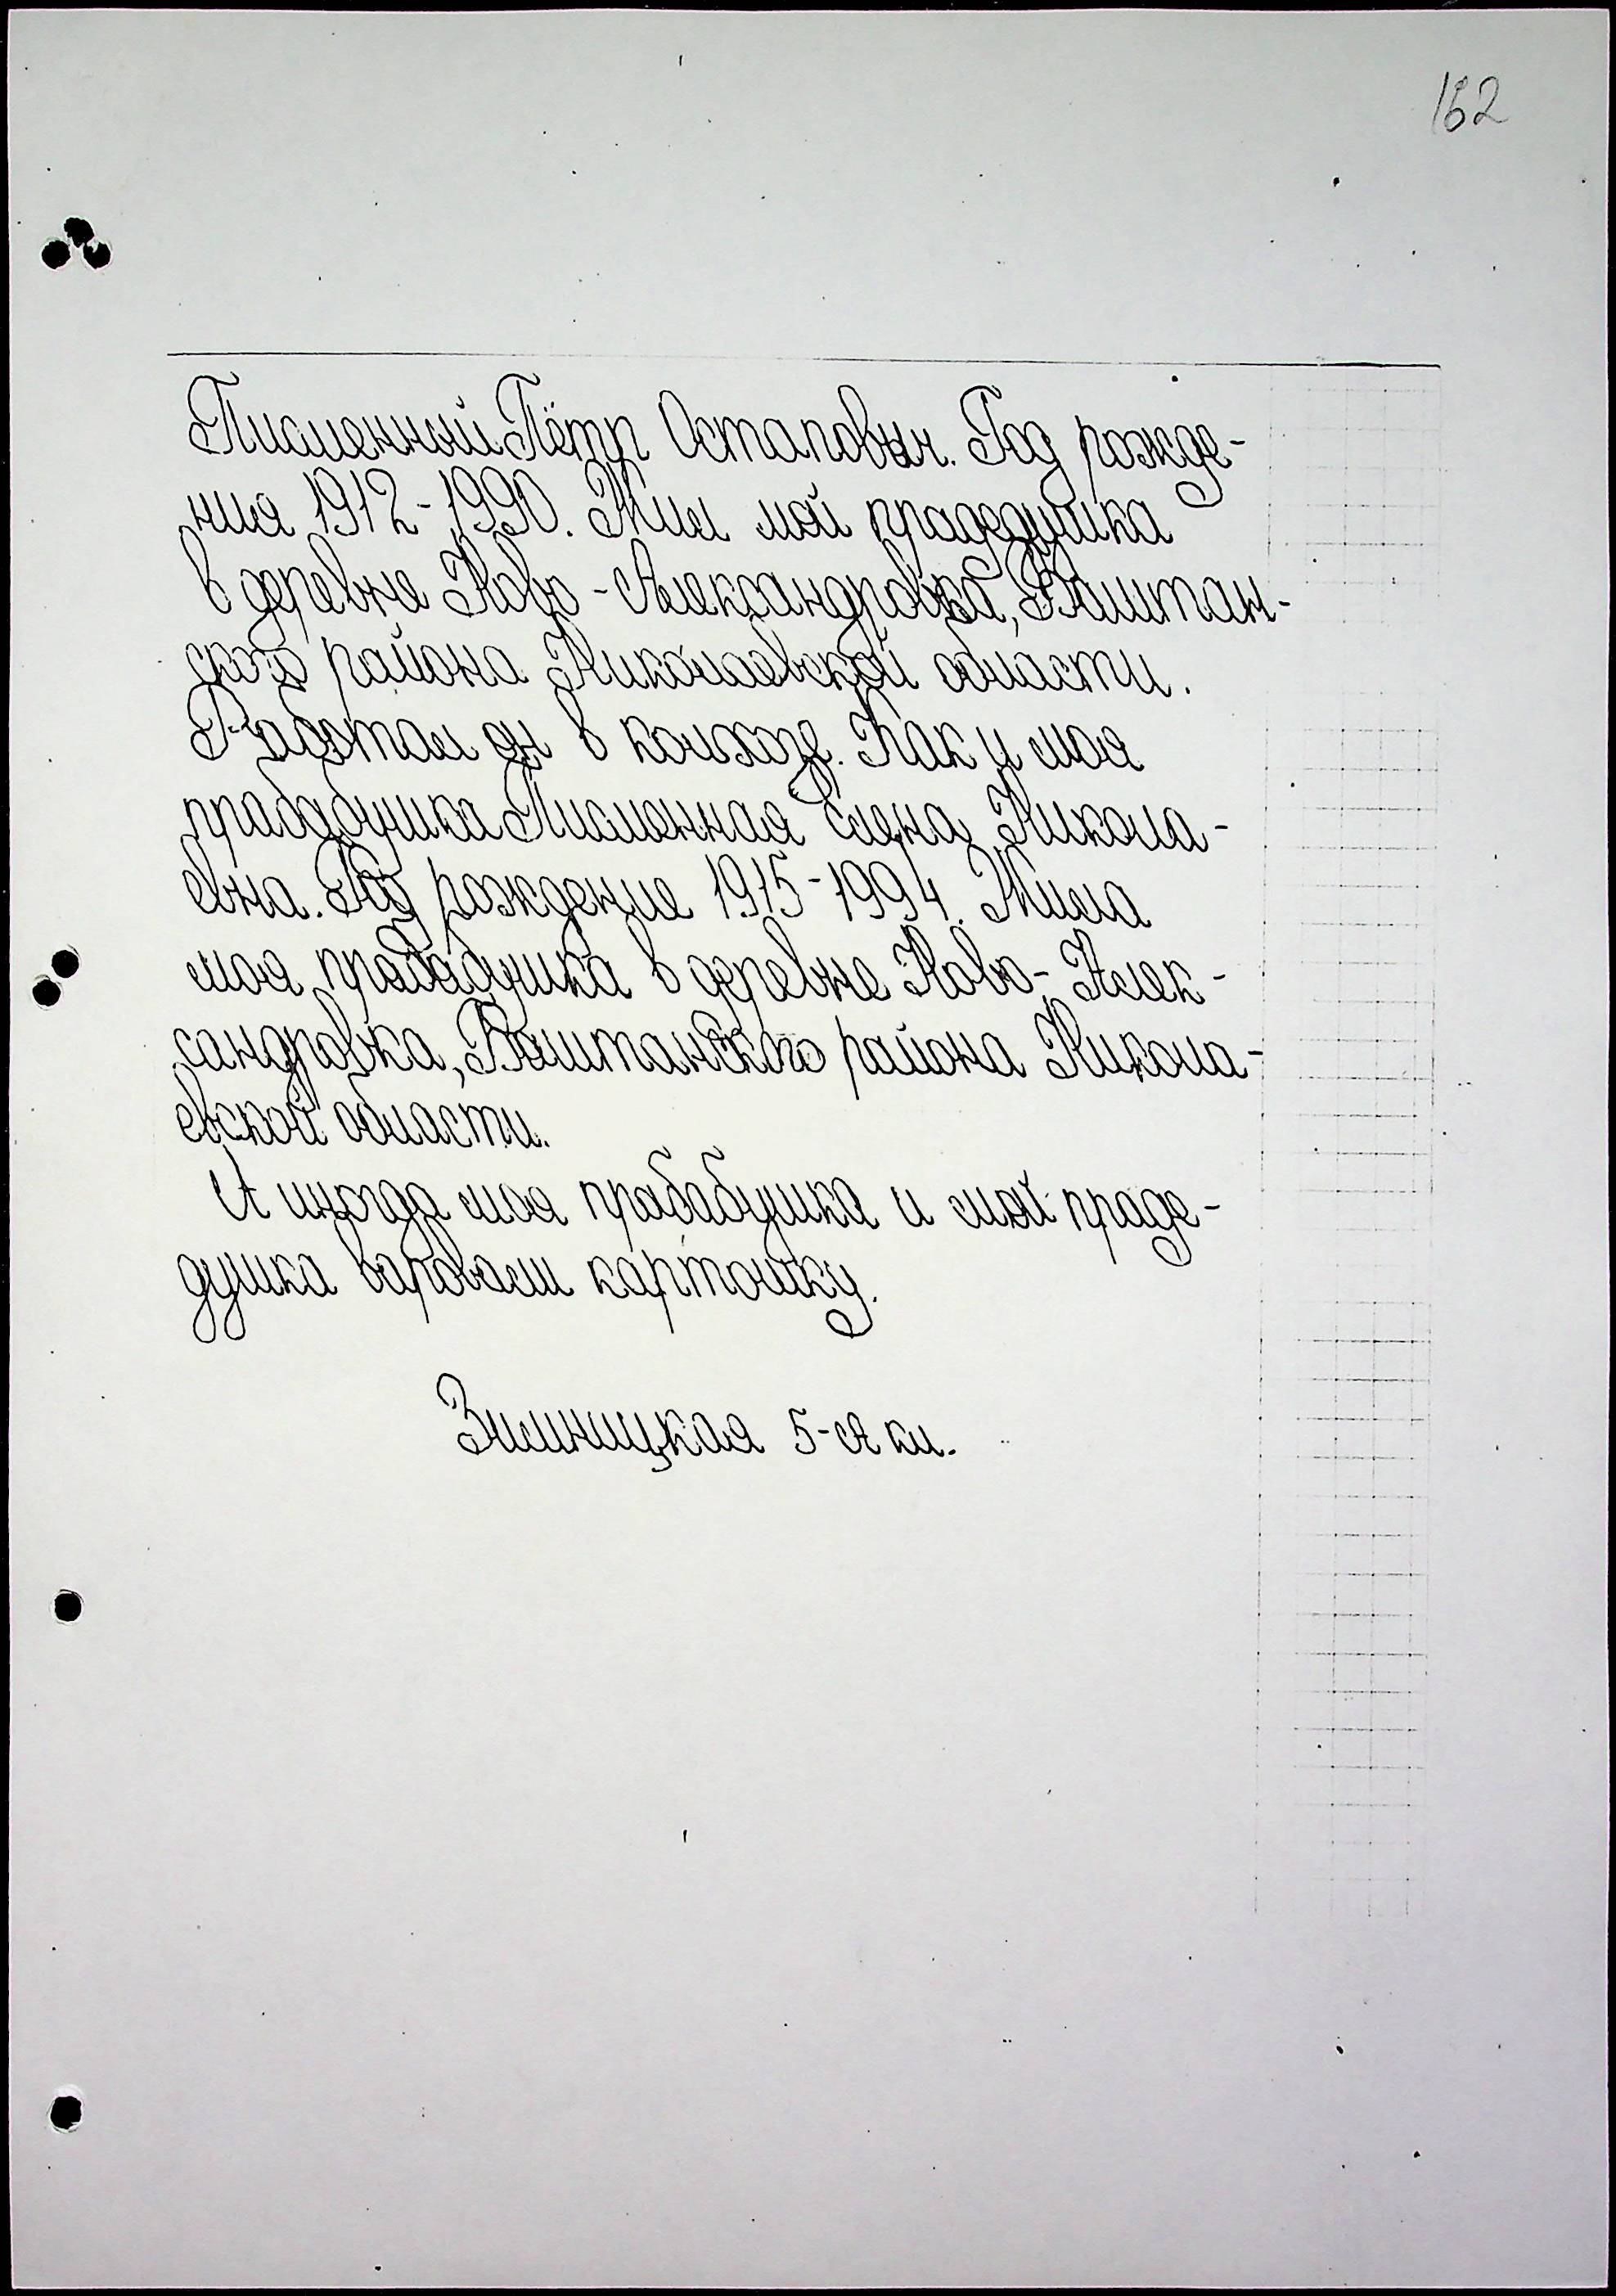 162
Писменный Пётр Остапович. Год рожде-
ния 1912-1990. Жил мой прадедушка
в деревне Ново-Александровка, Баштан-
ского района Николаевской области.
Работал он в колхозе. Как и моя
прабабушка Писменная Елена Никола-
евна. Год рождение 1915-1994. Жила
моя прабабушка в деревне Ново-Алек-
сандровка, Баштанского района Никола-
евской области.
А иногда моя прабабушка и мой праде-
душка варовали картошку.
Зилницкая 5-А кл.